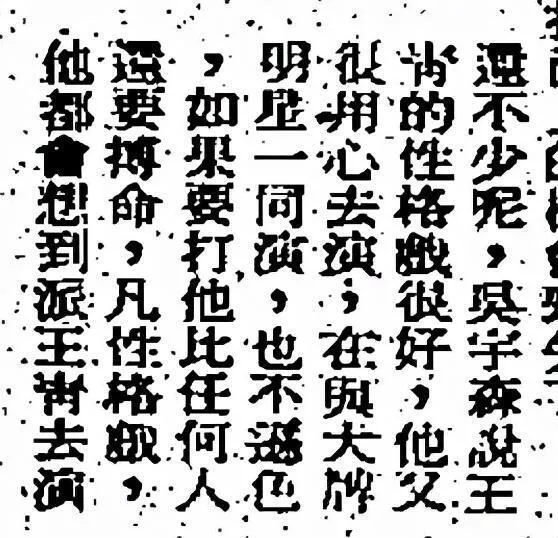 還不少呢，吳宇森說王
青的性格戲很好，他又
很用心去演；在與大牌
明星一同演，也不遜色
，如果要打他比任何人
還要搏命，凡性格戲，
他都會想到派王青去演